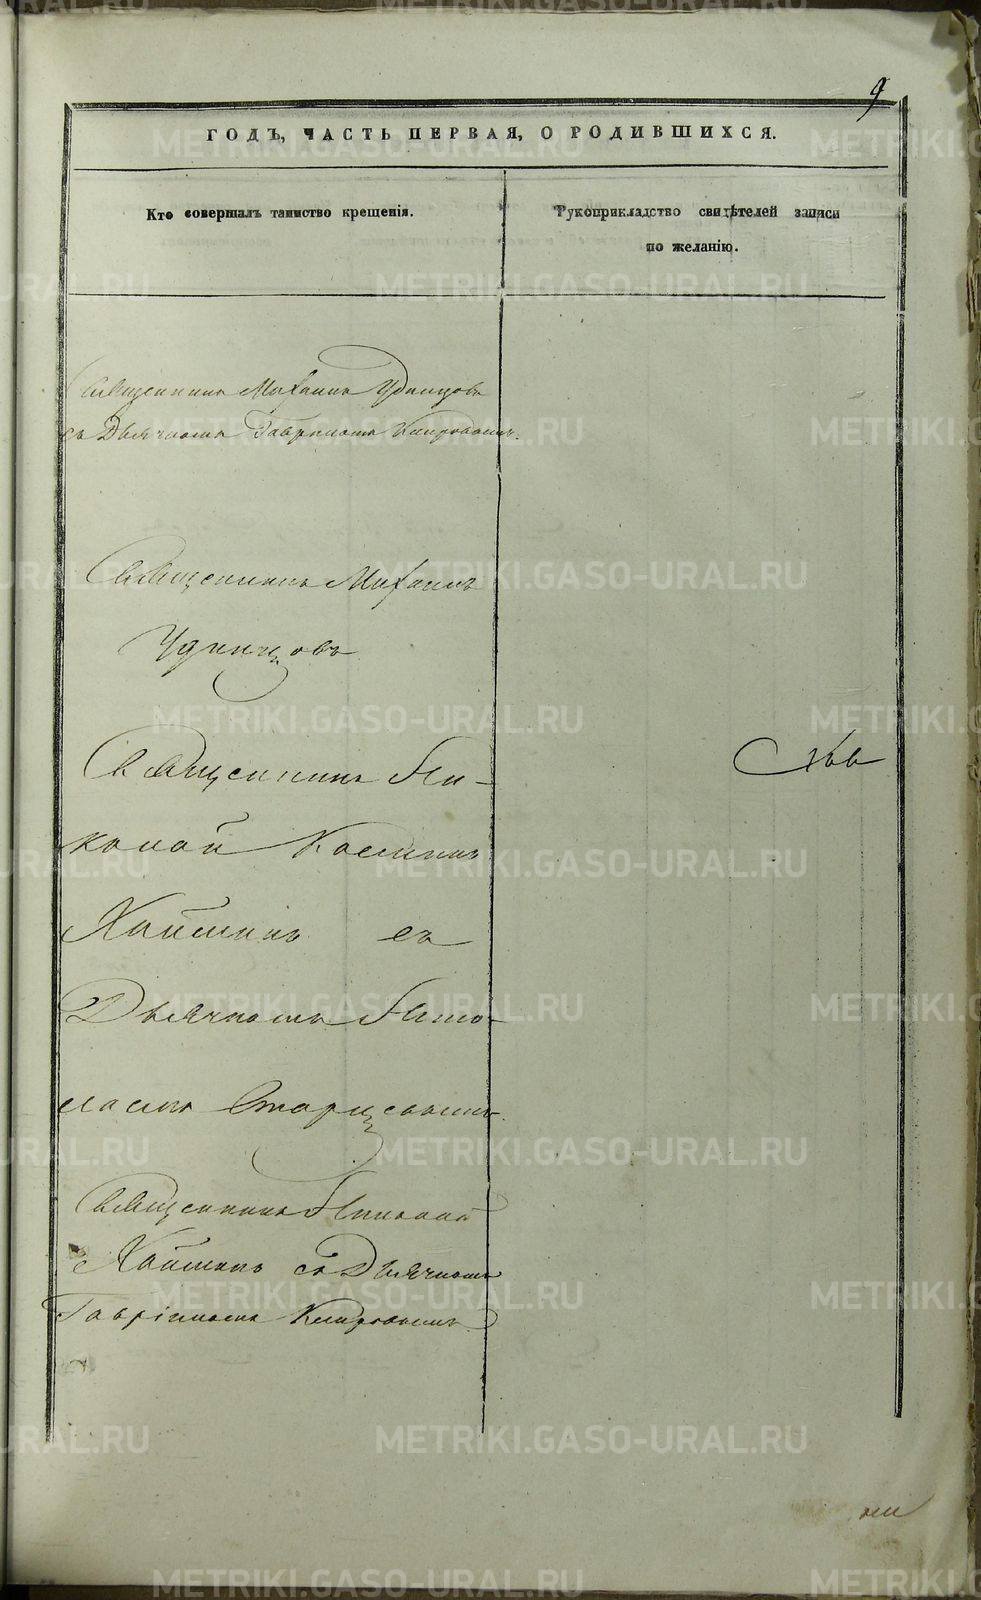 9
ГОДЪ, ЧАСТЬ ПЕРВАЯ, О РОДИВШИХСЯ.
Кто совершалъ таинство крещенія.
Рукоприкладство свидѣтелей записи
по желанію.
Священникъ Михаилъ Удинцовъ
съ Дьячкомъ Гавриломъ Кипровымъ.
Священникъ Михаилъ
Удинцовъ
Священникъ Ни-
колай Косминъ
Хайминъ съ
Дьячкомъ
Старцовымъ.
Священникъ Николай
Хайминъ съ Дьячкомъ
Гавріиломъ Кипровымъ
METRIKI.GASO-URAL.RU